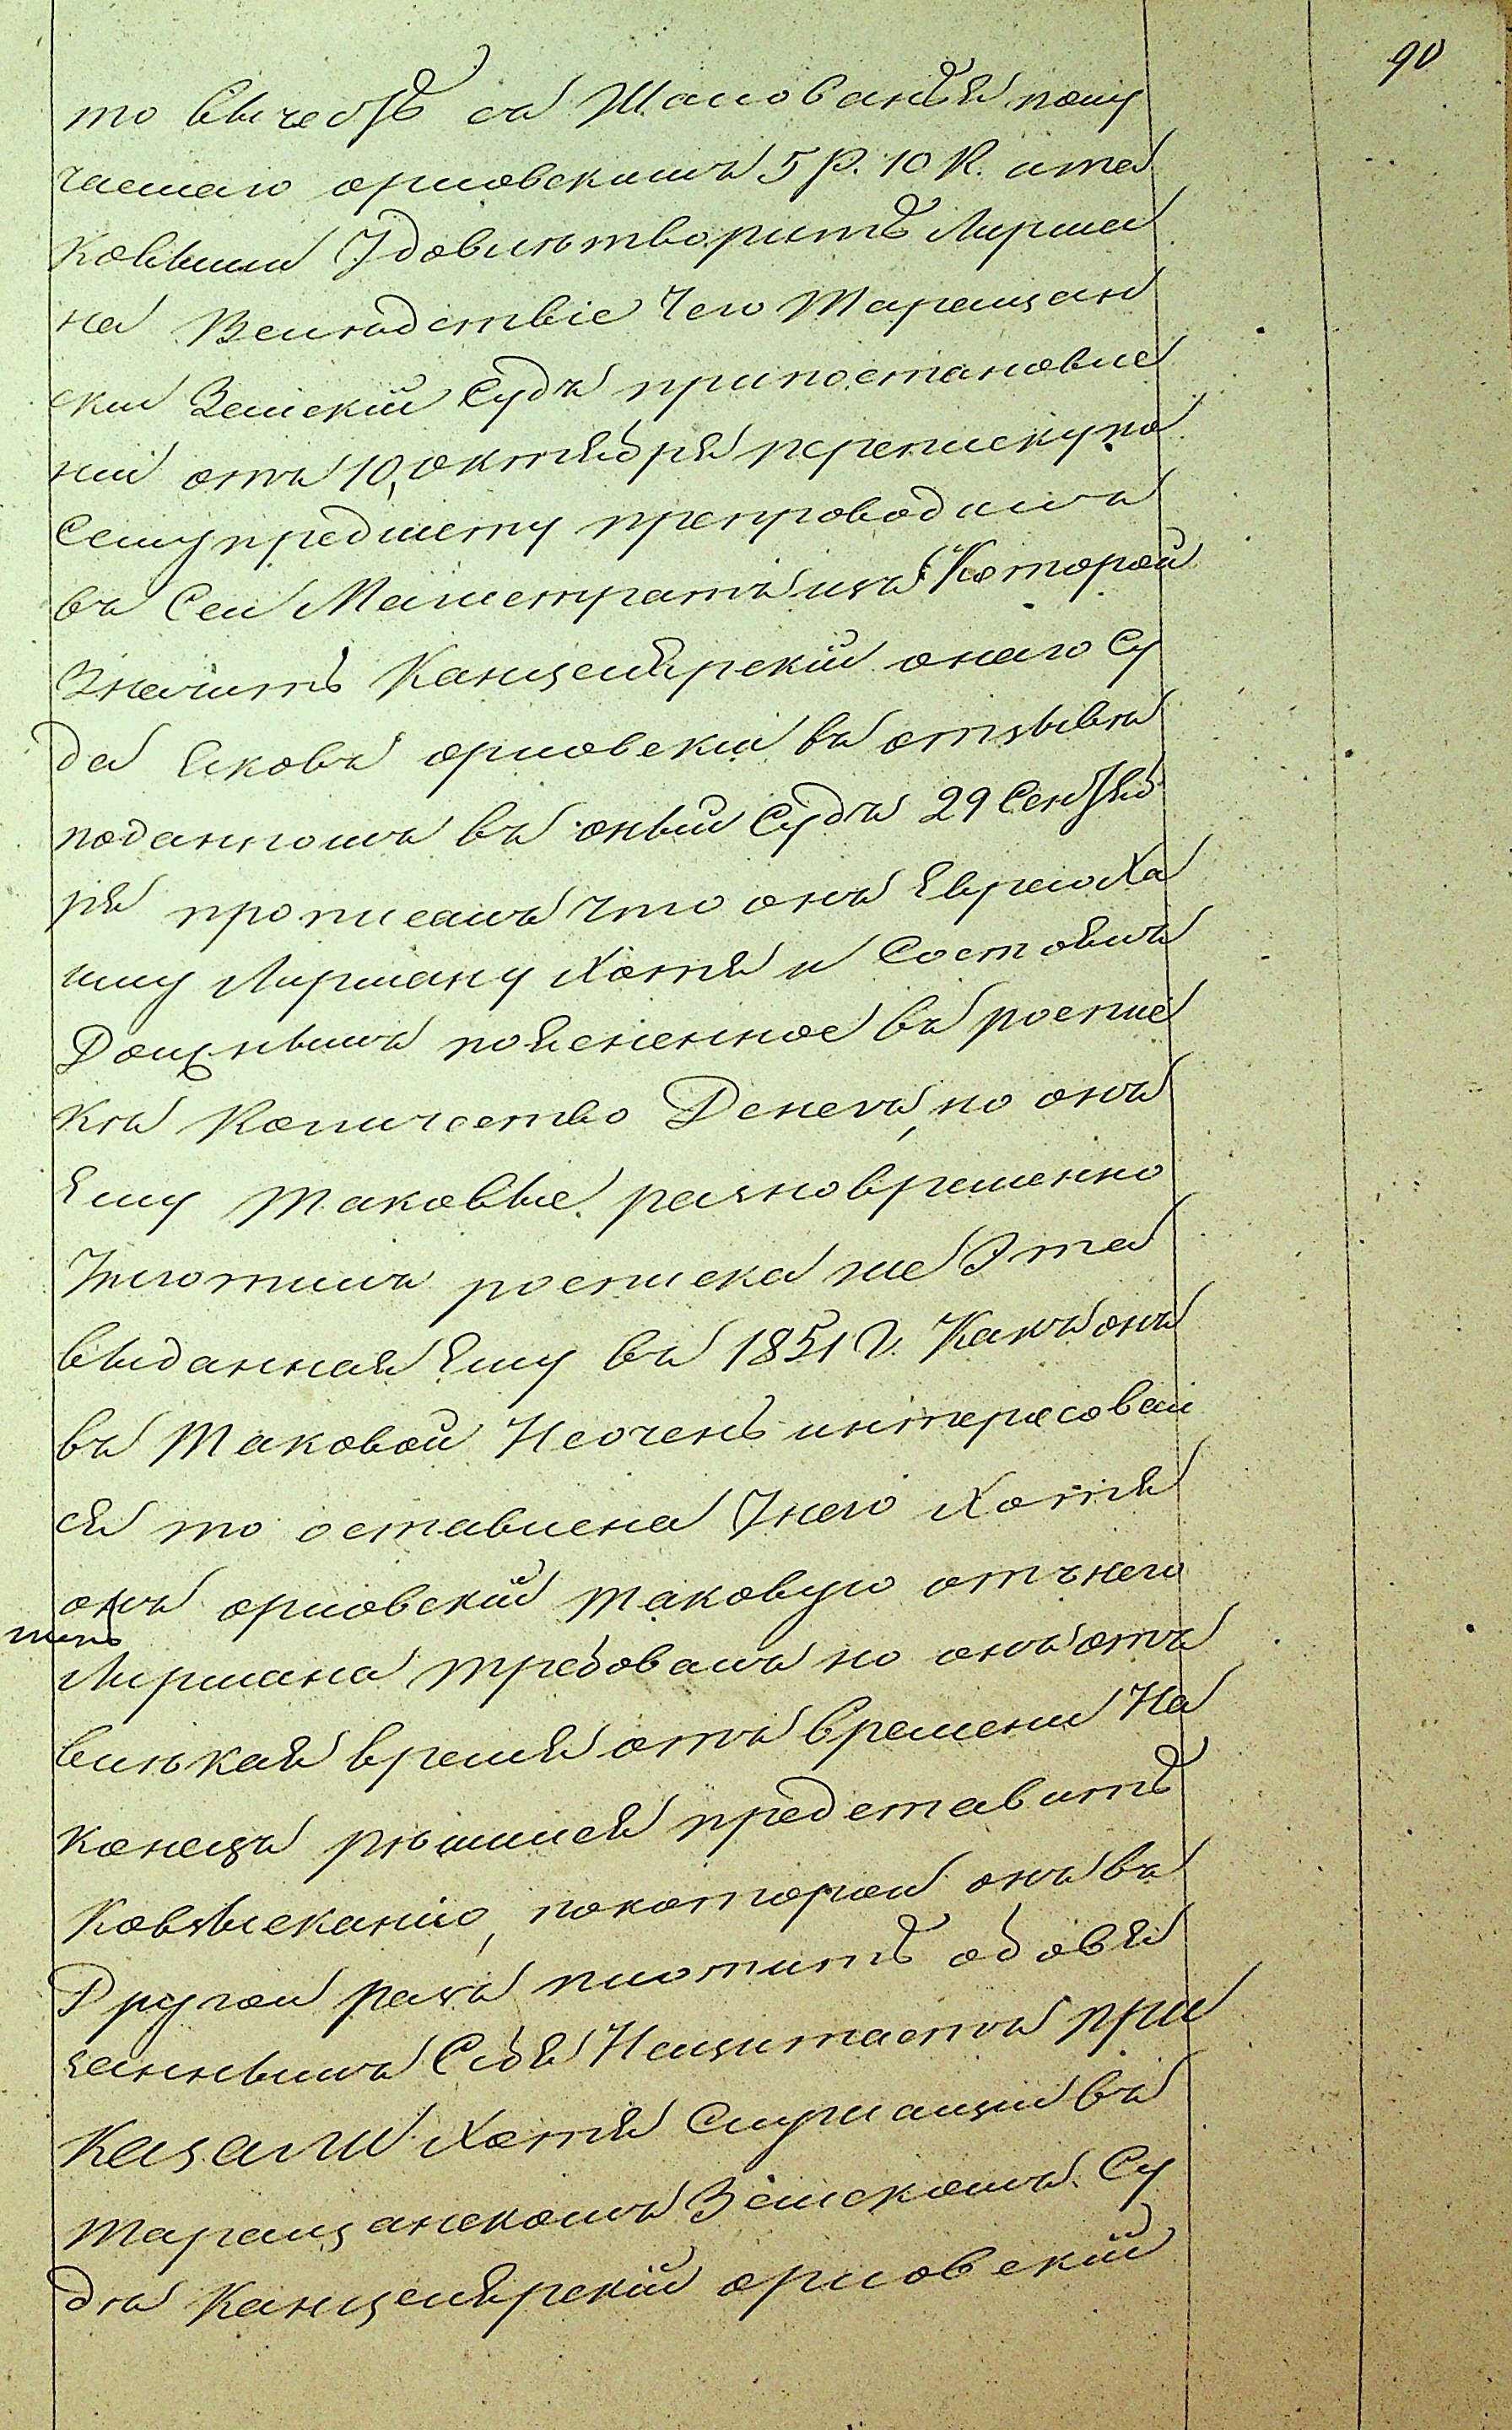 90
то вычесть съ Жалованья полу
чаемаго орловскимъ 5 р. 10 К. ита
ковыми Удовлѣтворить Лирма
на Вслѣдствіе Чего Таращан
ски Земскій Судъ припостановле
ніи отъ 10, октября переписку по
Сему предмету препроводилъ
въ Сеи Магистратъ изъ Которой
Значитъ Канцелярскій онаго Су
да Яковъ орловскій въ отзывѣ
поданномъ въ оный Судъ 29 Сентяб
ря прописалъ что онъ Еврею Ха
иму Лирману Хотя и Состоялъ
Должнымъ поясненное въ роспис
кѣ Количество Денегъ, но онъ
Ему Таковые разновременно
Уплотилъ росписка же Эта
выданная Ему въ 1851 г. Какъ онъ
въ Таковой Неочень интересовал
ся то оставлена Унего Хотя
онъ орловскій таковую отънего
Лирмана требовалъ но онъ отъ
велькая время отъ времени На
Конецъ рѣшился представить
Ковзысканію, покоторой онъ въ
Другой разъ плотить обовя
заннымъ Себя Нещитаетъ при
Казали Хотя Служащи въ
Таращанскомъ Земскомъ Су
дѣ Канцелярскій орловскій